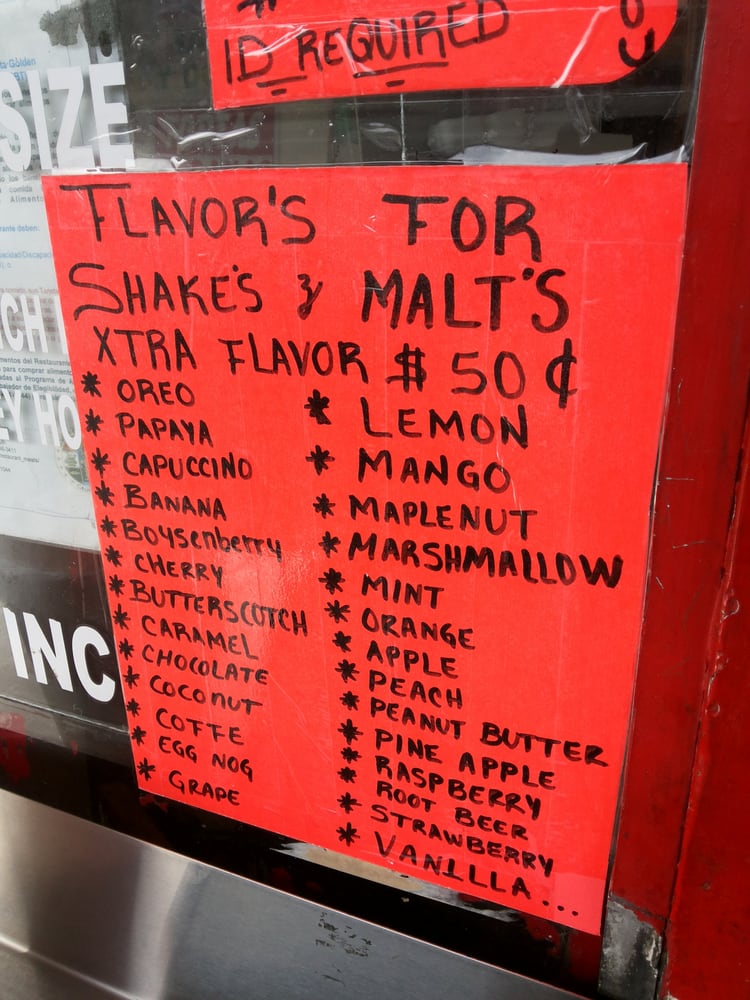 ID REQUIRED
SIZE
INC
FLAVOR'S FOR
SHAKE'S & MALT'S
XTRA FLAVOR $ 50 ¢
* OREO
* PAPAYA
* CAPUCCINO
* BANANA
* Boysenberry
* CHERRY
* BUTTERSCOTCH
* CARAMEL
* CHOCOLATE
* COCONUT
* COFFE
* EGG NOG
* GRAPE
* LEMON
* MANGO
* MAPLENUT
* MARSHMALLOW
* MINT
* ORANGE
* APPLE
* PEACH
* PEANUT BUTTER
* PINE APPLE
* RASPBERRY
* ROOT BEER
* STRAWBERRY
* VANILLA...